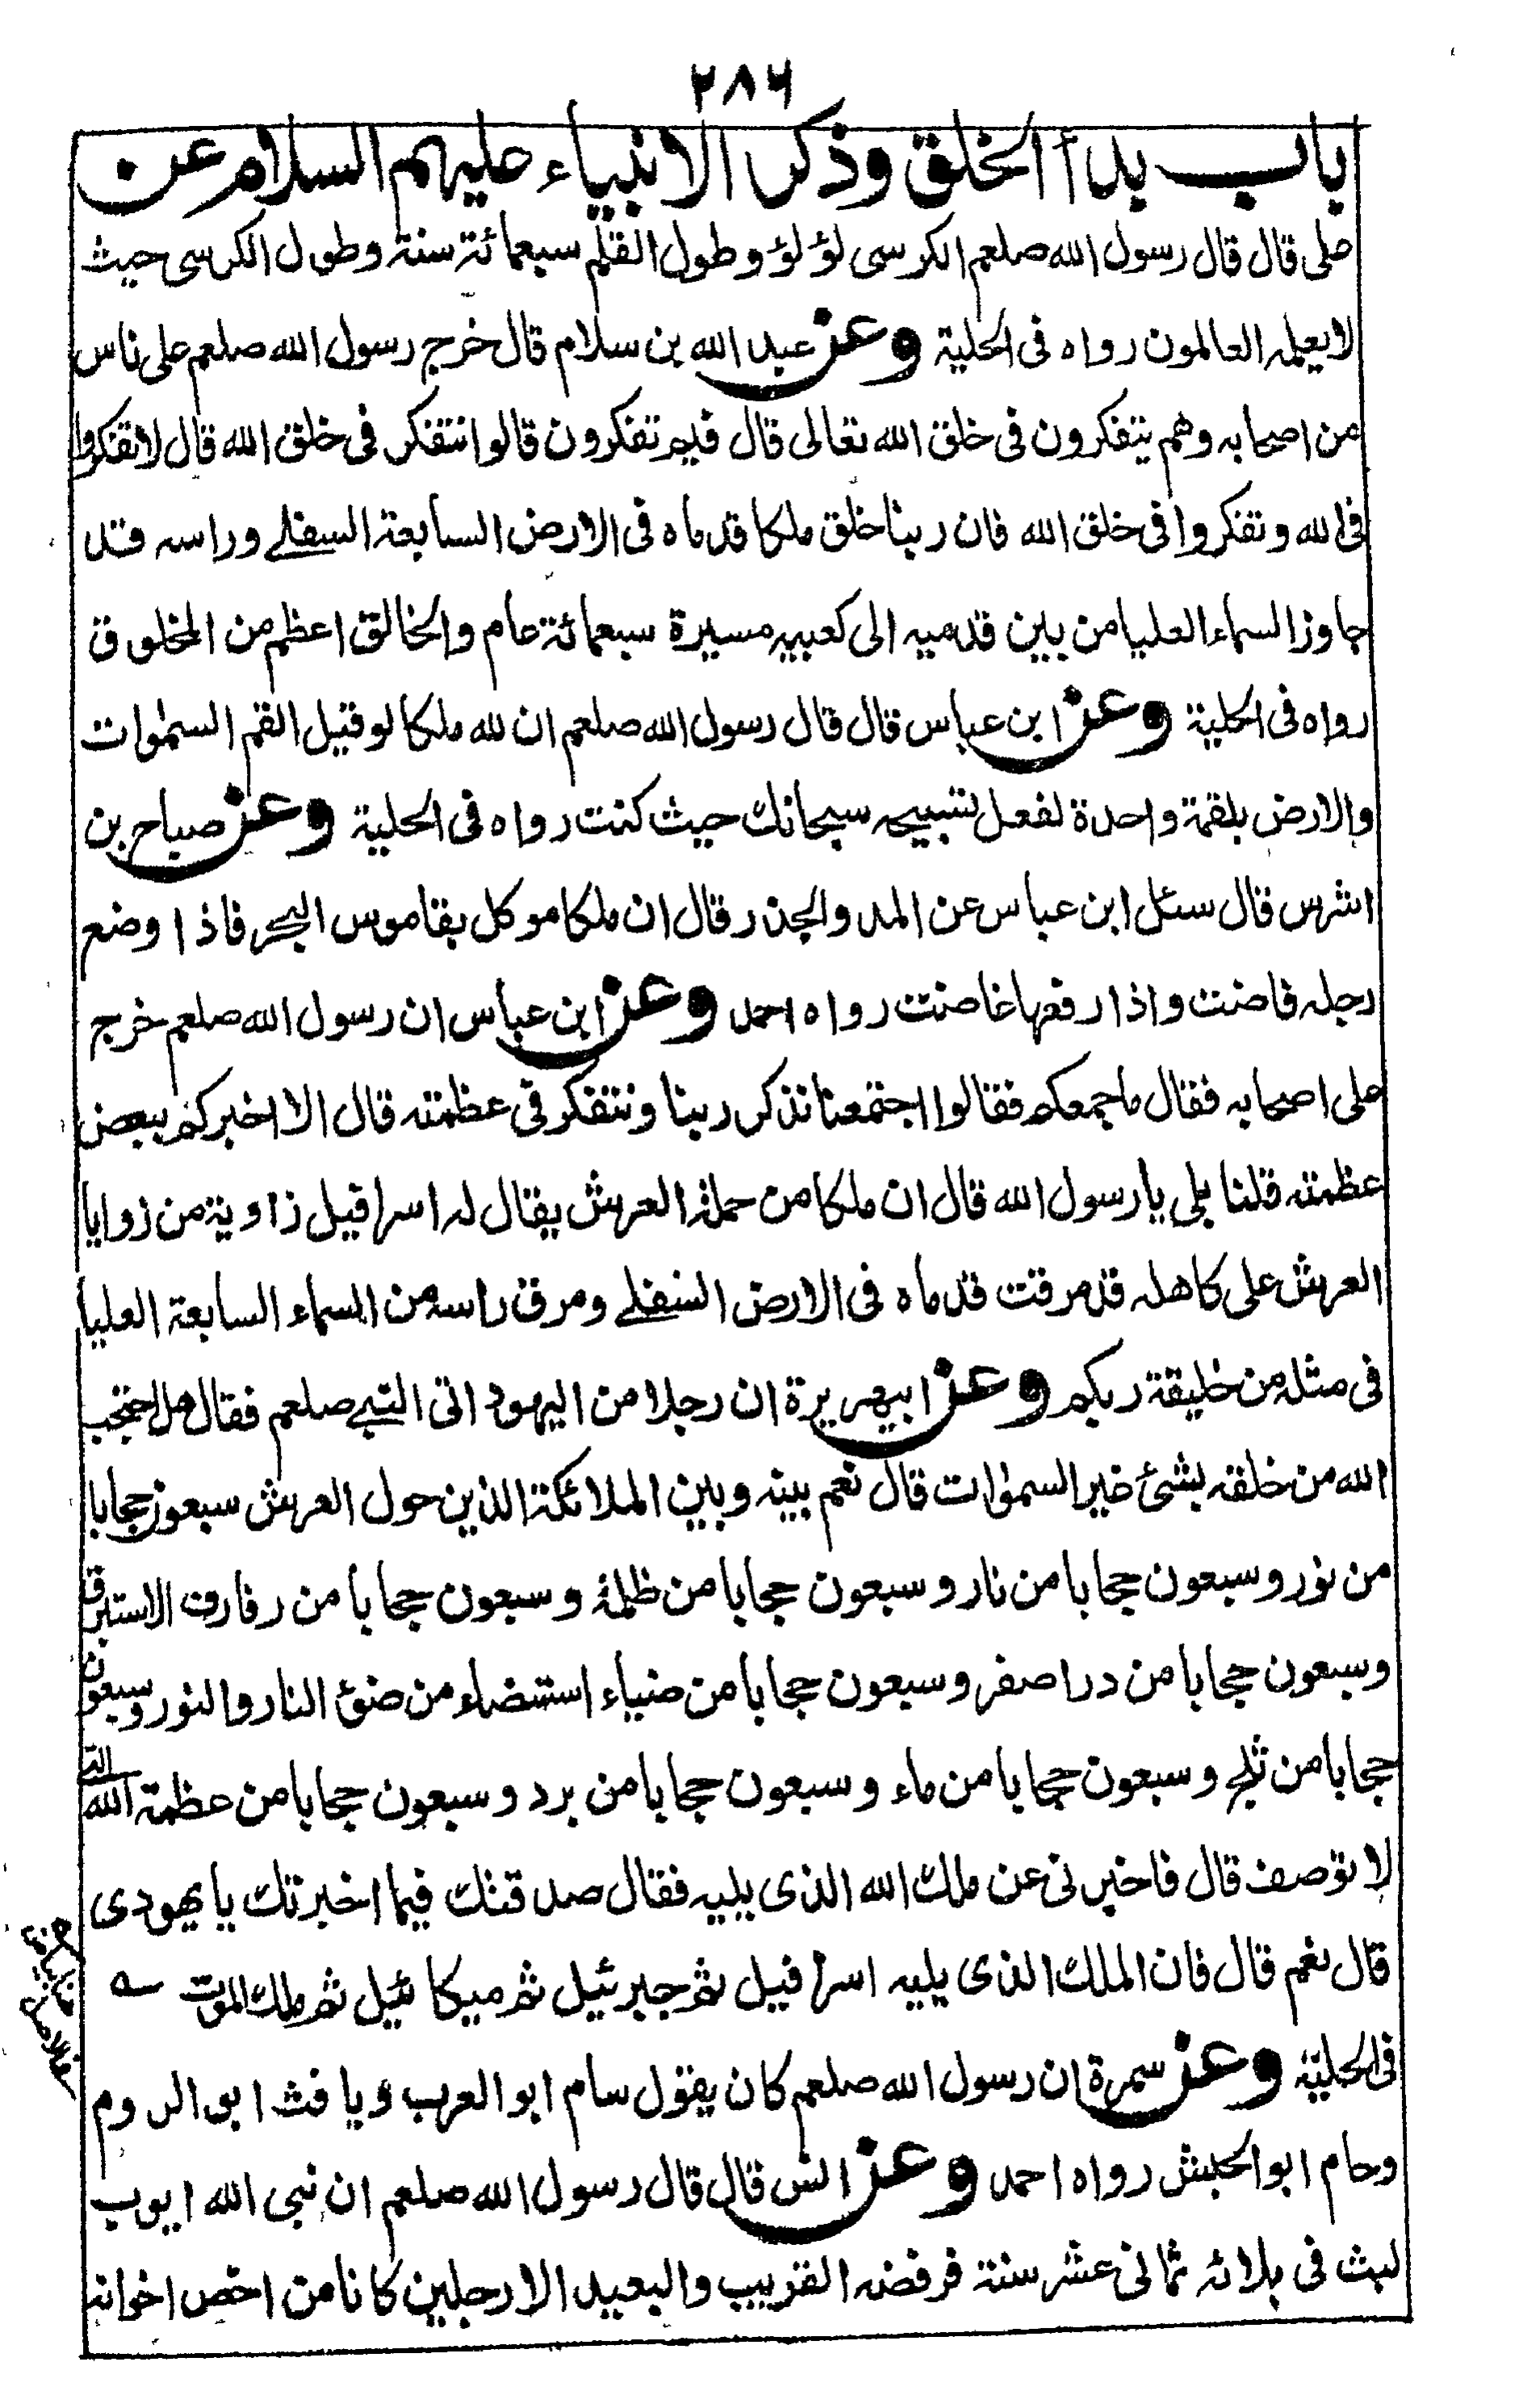 ۲۸۶
باب بدأ الخلق وذكر الانبياء عليهم السلام عن
على قال قال رسول الله صلعم الكرسى لؤلؤ وطول القلم سبعمائة سنة وطول الكرسى حيث
لا يعلمه العالمون رواه فى الحلية وعن عبد الله بن سلام قال خرج رسول الله صلعم على ناس
من اصحابه وهم يتفكرون فى خلق الله تعالى قال فيم تفكرون قالوا نتفكر فى خلق الله قال لا تفكروا
فى الله وتفكروا فى خلق الله فان ربنا خلق ملكا قدماه فى الارض السابعة السفلى وراسه قد
جاوز السماء العليا من بين قدميه الى كعبيه مسيرة سبعمائة عام والخالق اعظم من المخلوق
رواه فى الحلية وعن ابن عباس قال قال رسول الله صلعم ان لله ملكا لو قيل القم السموات
والارض بلقمة واحدة لفعل تسبيحه سبحانك حيث كنت رواه فى الحلية وعن صباح بن
اشرس قال سئل ابن عباس عن المد والجذر قال ان ملكا موكل بقاموس البحر فاذا وضع
رجله فاضت واذا رفعها غاضت رواه احمد وعن ابن عباس ان رسول الله صلعم خرج
على اصحابه فقال ما جمعكم فقالوا اجتمعنا نذكر ربنا ونتفكر فى عظمته قال الا اخبركم ببعض
عظمته قلنا بلى يا رسول الله قال ان ملكا من حملة العرش يقال له اسرافيل زاوية من زوايا
العرش على كاهله قد مرقت قدماه فى الارض السفلى ومرق راسه من السماء السابعة العليا
فى مثله من خليقة ربكم وعن ابيهريرة ان رجلا من اليهود اتى النبى صلعم فقال هل احتجب
الله من خلقه بشئ غير السموات قال نعم بينه وبين الملائكة الذين حول العرش سبعون حجابا
من نور وسبعون حجابا من نار وسبعون حجابا من ظلمة وسبعون حجابا من رفارف الاستبرق
وسبعون حجابا من در اصفر وسبعون حجابا من ضياء استضاء من ضوء النار والنور وسبعون
حجابا من ثلج وسبعون حجابا من ماء وسبعون حجابا من برد وسبعون حجابا من عظمة الله التى
لا توصف قال فاخبرنى عن ملك الله الذى يليه فقال صدقتك فيما اخبرتك يا يهودى
قال نعم قال فان الملك الذى يليه اسرافيل ثم جبرئيل ثم ميكائيل ثم ملك الموت
فى الحلية وعن سمرة ان رسول الله صلعم كان يقول سام ابو العرب ويافث ابى الروم
وحام ابو الحبش رواه احمد وعن انس قال قال رسول الله صلعم ان نبى الله ايوب
لبث فى بلائه ثمانى عشر سنة فرفضه القريب والبعيد الا رجلين كانا من اخص اخوانه